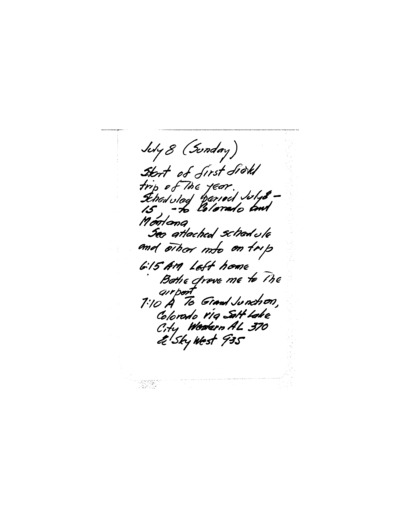 July 8 (Sunday)
Start of first field
trip of the year.
Scheduled period July 8 -
15 - to Colorado and
Montana
See attached schedule
and other info on trip
6:15 AM Left home
Bathe drove me to the
airport
7:10 A To Grand Junction,
Colorado via Salt Lake
City Western AL 370
& Sky West 935